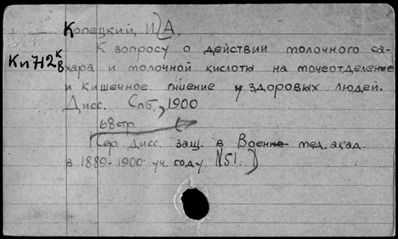 Копецкий, И. А.
Кп712 К/8
К вопросу о действии молочного са-
хара и молочной кислоты на мочеотделение
и кишечное гниение у здоровых людей.
Дисс. Спб., 1900
68 стр.
(Сер. Дисс. защ. в Военно-мед. акад.
в 1889-1900 уч. году. N51.)